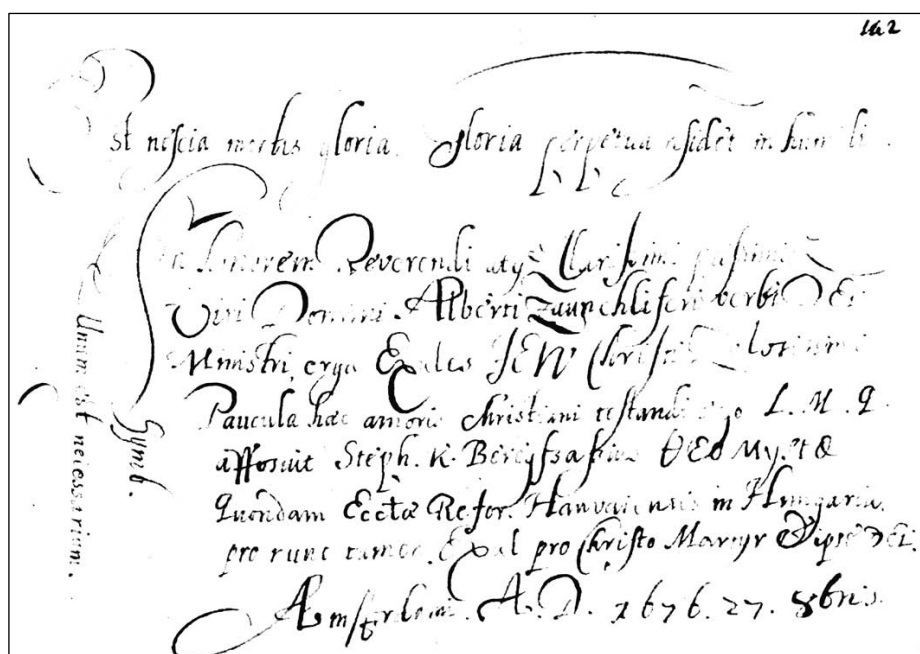 142
Est nescia morbis gloria. Gloria perpetua residet in humili.
In Honorem Reverendi atq. Clarissimi piissimi
Viri Domini Alberti verbi DEI
Ministri, erga Exules IESU Christi Zelosissimi
Paucula haec amoris Christiani testandi ergo L. M. Q.
apposuit Steph. K.
Quondam Eccłae Refor. Hanvaiensis in Hungaria,
pro nunc tamen Exul pro Christo Martyr
Amsterdami. A. D. 1676. 27. 8bris.
Symb.
Unum est necessarium.